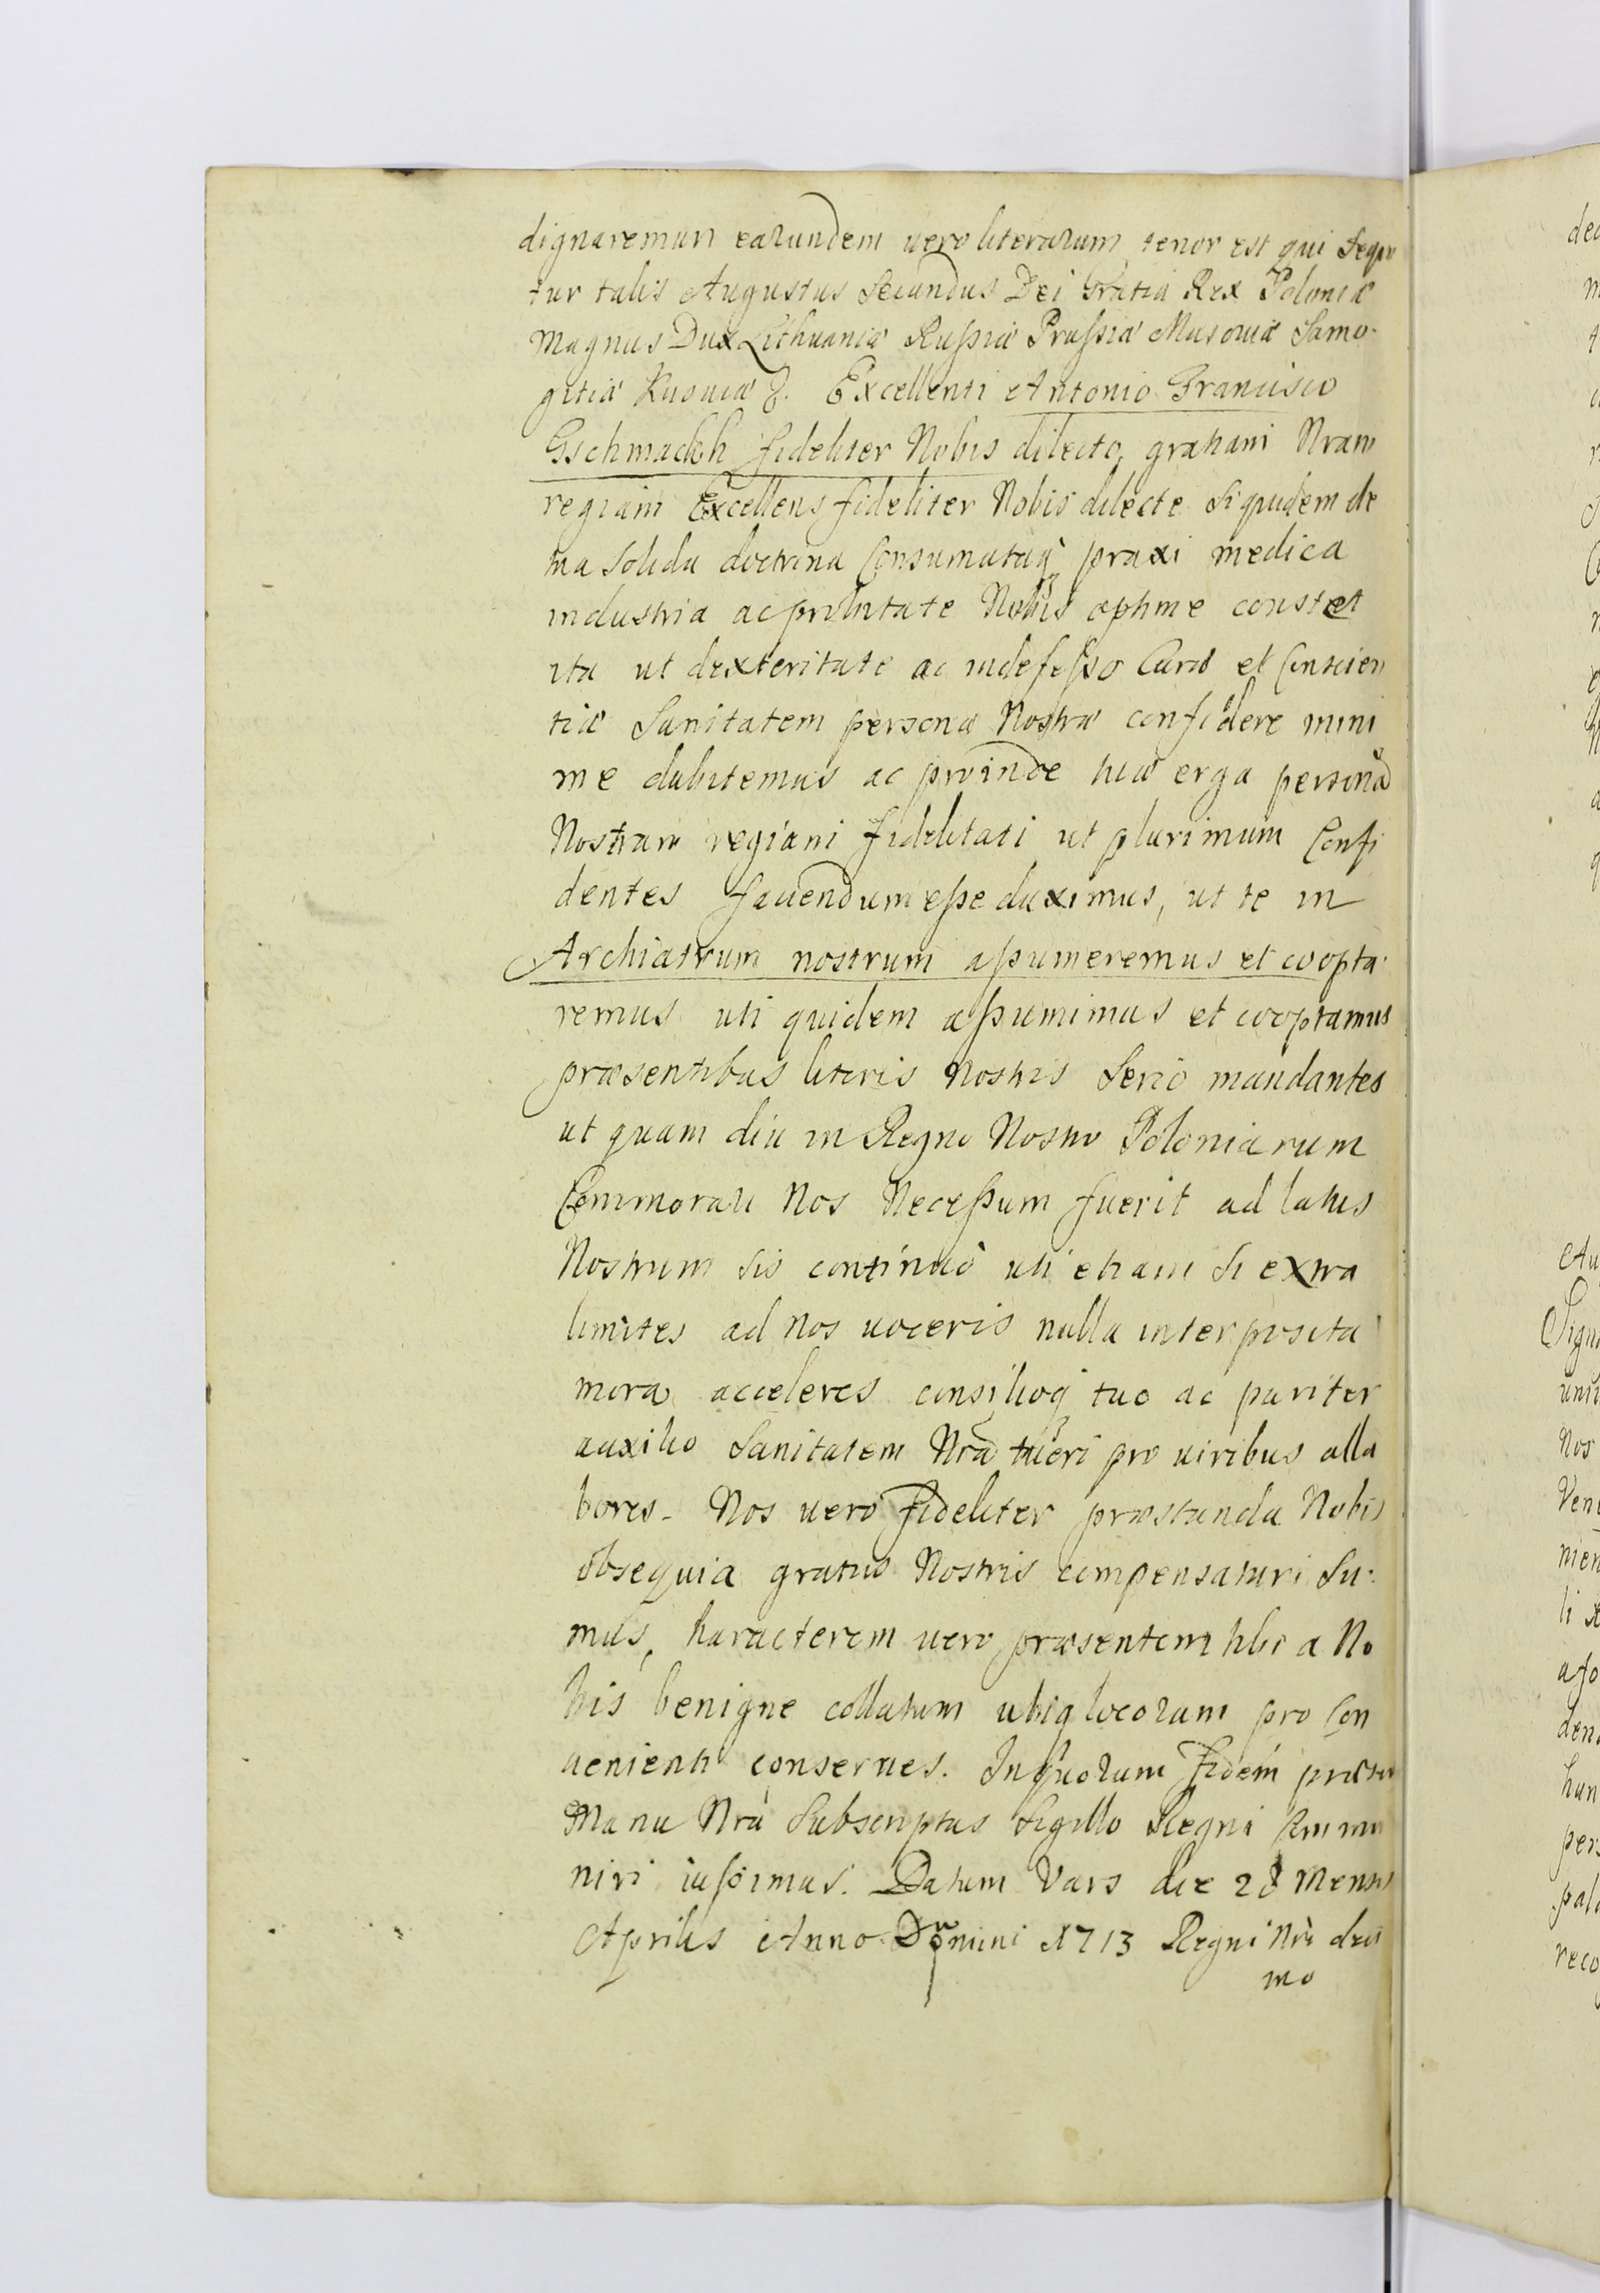 dignaremur earundem vero literarum tenor est qui sequi
tur talis Augustus Secundus Dei Gratia Rex Poloniæ
Magnus Dux Lithuaniæ Russiæ Prussiæ Masoviæ Samo-
gitiæ &. Excellenti Antonio Francisco
Gschmackh fideliter Nobis dilecto, gratiam Nram
regiam Excellens fideliter Nobis dilecte Siquidem de
tua solida doctrina Consumataq praxi medica
industria ac probitate Nobis optime constet
ita ut dexteritate ac indefesso Curæ et Conscien
tiæ Sanitatem personæ Nostræ confidere mini
me dubitemus ac proinde tuæ erga personã
Nostram regiam fidelitati ut plurimum Confi
dentes favendum esse duximus, ut te in
Archiatrum nostrum assumeremus et coopta-
remus uti quidem assumimus et cooptamus
præsentibus literis Nostris Serio mandantes
ut quam diu in Regno Nostro Poloniarum
Commorari Nos Necessum fuerit ad latus
Nostrum sis continuò uti etiam si extra
limites ad nos voceris nulla interposita
mora acceleres consilioq tuo ac pariter
auxilio Sanitatem Nrã tueri pro viribus alla
bores. Nos vero fideliter præstanda Nobis
obsequia gratiis Nostris compensaturi Su-
mus, haracterem vero præsentem tibi a No
bis benigne collatum ubiq locorum pro Con
venienti conserves. In quorum fidem præsen
Manu Nrâ Subscriptas Sigillo Regni Commu
niri iussimus. Datum Vars die 28 Mensis
Aprilis Anno Domini 1713 Regni Nri deci
mo
deq
Au
Sign
Nos
Ven
nien
li
den
han
per
pal
reco